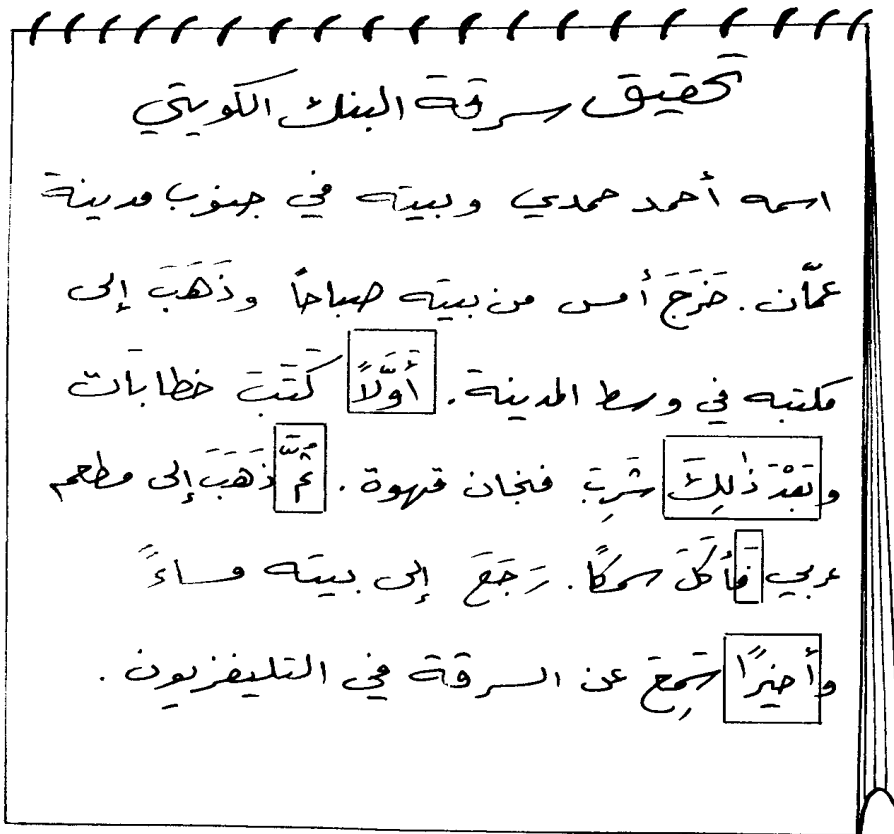 تحقيق سرقة البنك الكويتي
اسمه أحمد حمدي وبيته في جنوب مدينة
عمّان. خَرَجَ أمس من بيته صباحاً وذَهَبَ إلى
مكتبه في وسط المدينة. أَوَّلاً كَتَبَ خطابات
وبَعْدَ ذٰلِكَ شَرِبَ فنجان قهوة. ثُمَّ ذَهَبَ إلى مطعم
عربي فَأَكَلَ سمكًا. رَجَعَ إلى بيته مساءً
وأخيرًا سَمِعَ عن السرقة في التليفزيون.